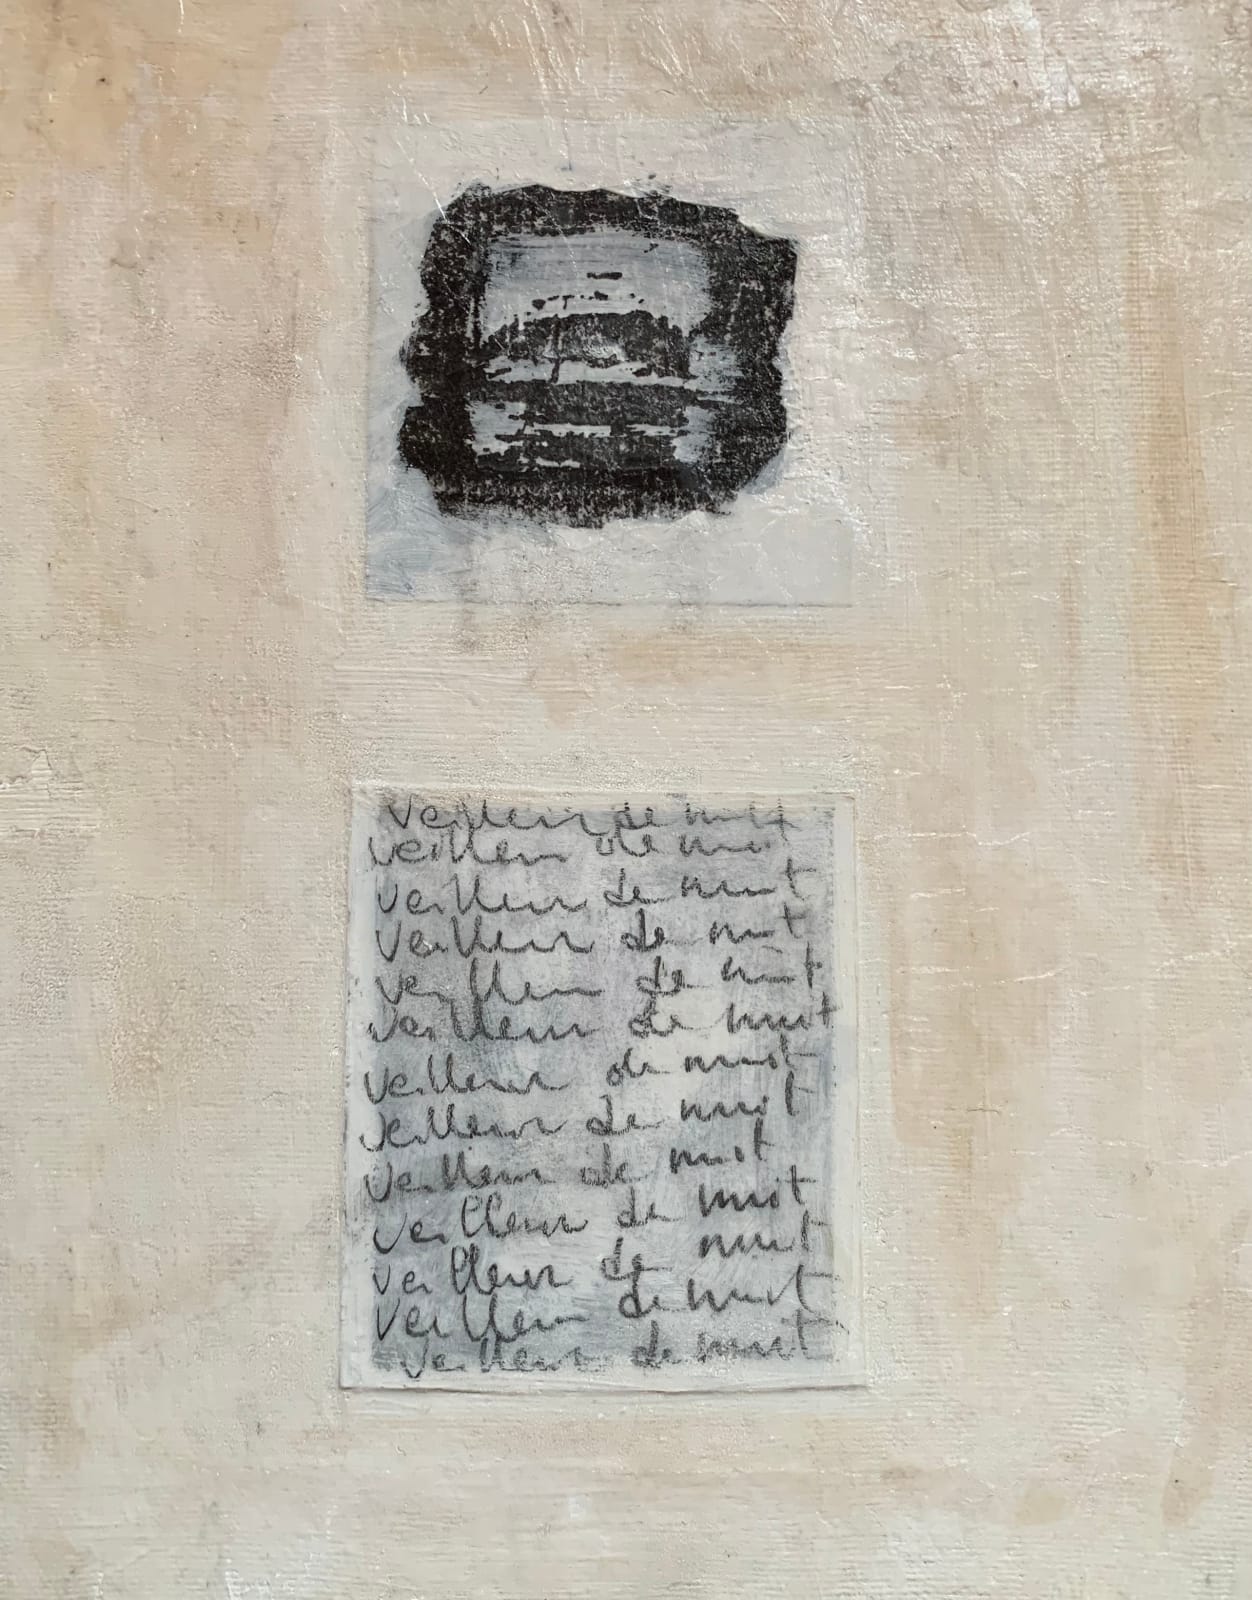 veilleur de nuit
veilleur de nuit
veilleur de nuit
veilleur de nuit
veilleur de nuit
veilleur de nuit
veilleur de nuit
veilleur de nuit
veilleur de nuit
veilleur de nuit
veilleur de nuit
veilleur de nuit
veilleur de nuit